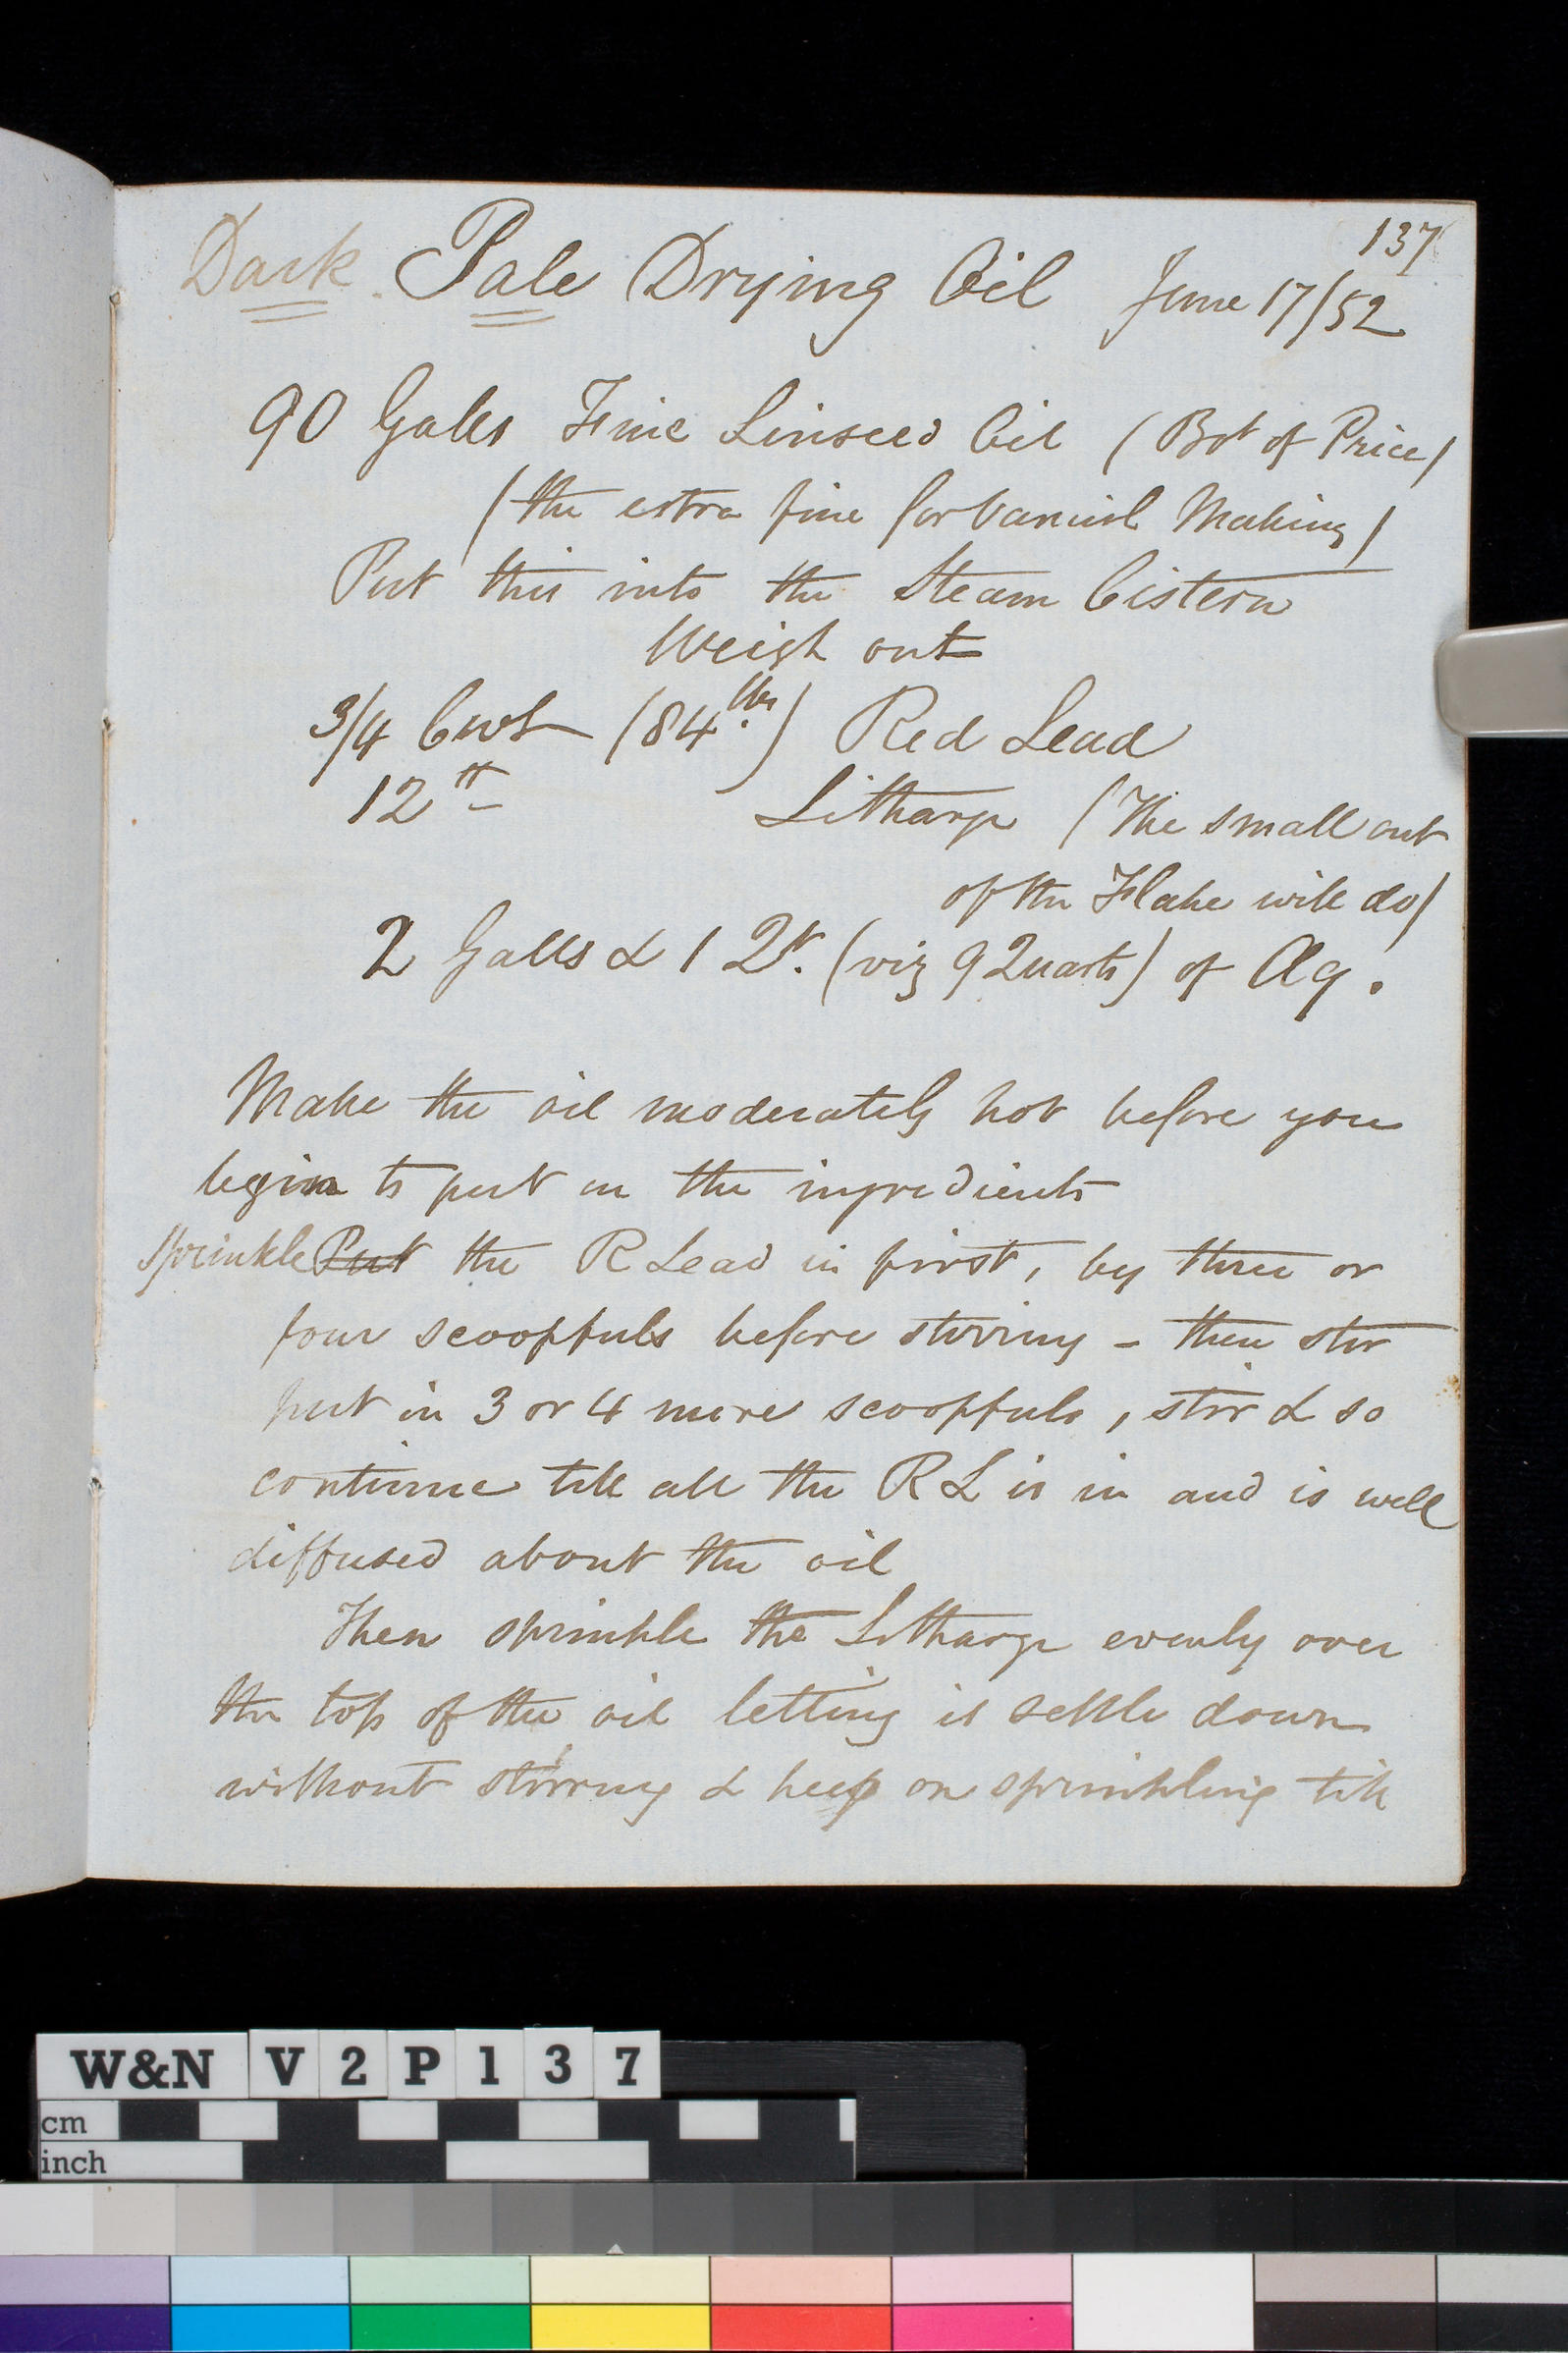 137
Dark. Pale Drying Oil June 17/52
90 Galls Fine Linseed Oil (Bot of Price)
(the extra fine for Varnish Making)
Put this into the Steam Cistern
Weigh out
3/4 Cwt (84 lbs) Red Lead
12 tt Litharge (The small out
of the Flake will do)
2 Galls & 1 Qt. (viz 9 Quarts) of Aq.
Make the oil moderately hot before you
begin to put in the ingredients
Sprinkle Put the R Lead in first, by three or
four scoopfuls before stirring - then stir
put in 3 or 4 more scoopfuls, stir & so
continue till all the R L is in and is well
diffused about the oil
Then sprinkle the Litharge evenly over
the top of the oil letting it settle down
without stirring & keep on sprinkling till
W&N V2P137
cm
inch